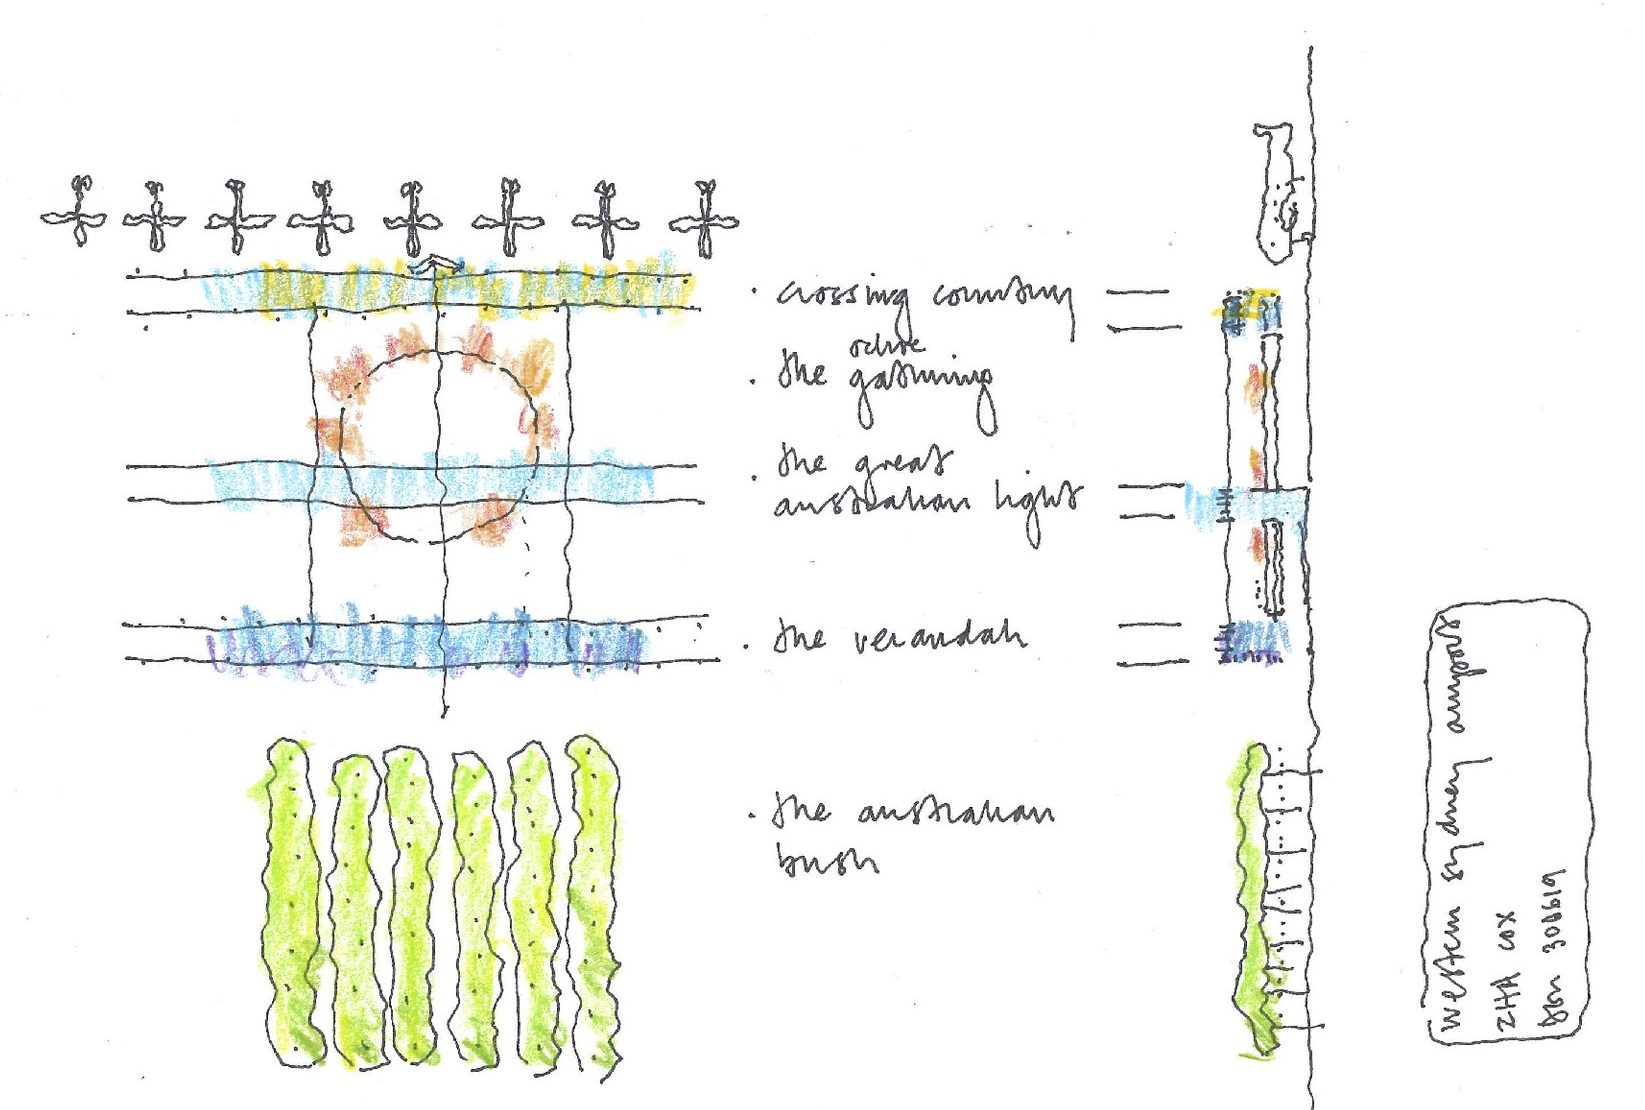 . crossing country
ochre
. the gathering
. the great
australian light
. the verandah
. the australian
bush
western sydney airport
ZHA COX
300619